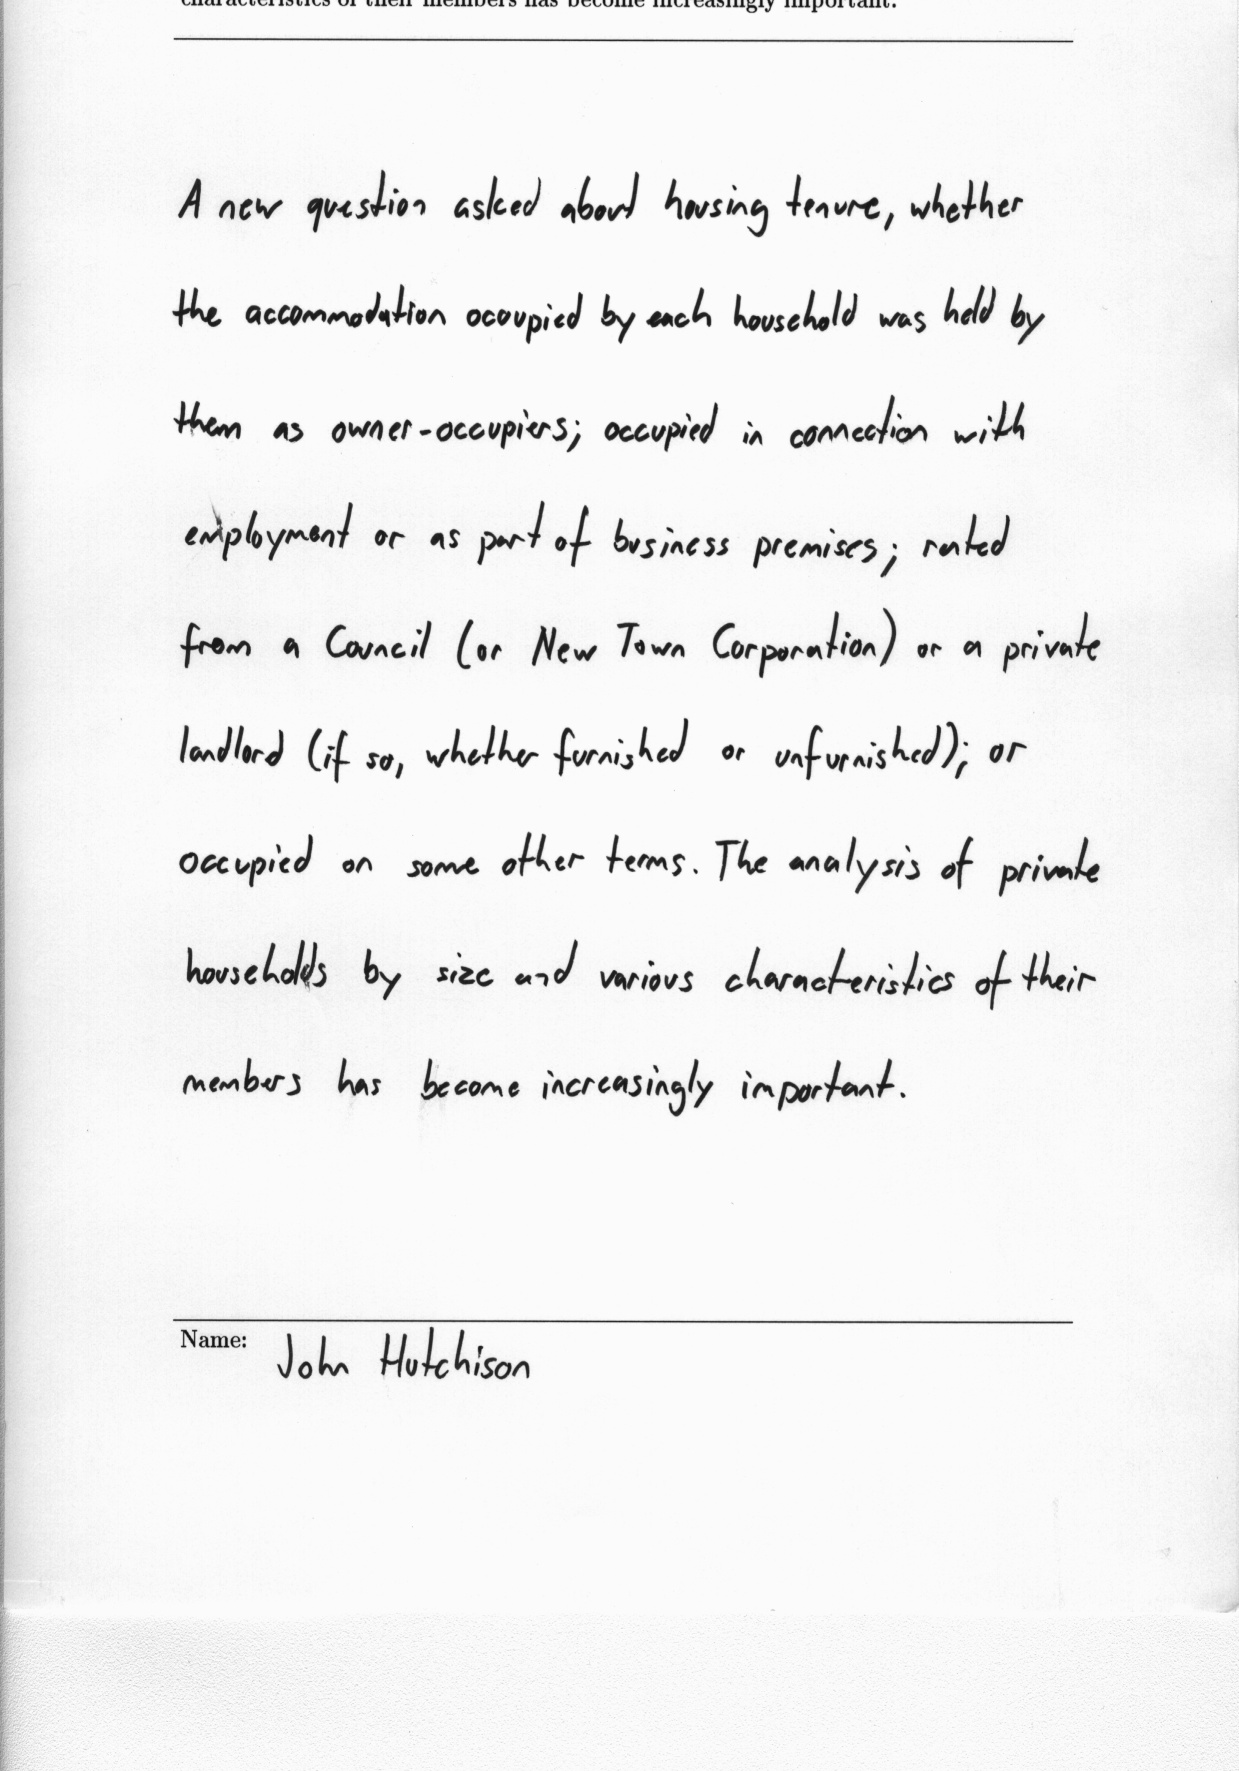 characteristics of their members has become increasingly important.
A new question asked about housing tenure, whether
the accommodation occupied by each household was held by
them as owner-occupiers; occupied in connection with
employment or as part of business premises; rented
from a Council (or New Town Corporation) or a private
landlord (if so, whether furnished or unfurnished); or
occupied on some other terms. The analysis of private
households by size and various characteristics of their
members has become increasingly important.
Name: John Hutchison